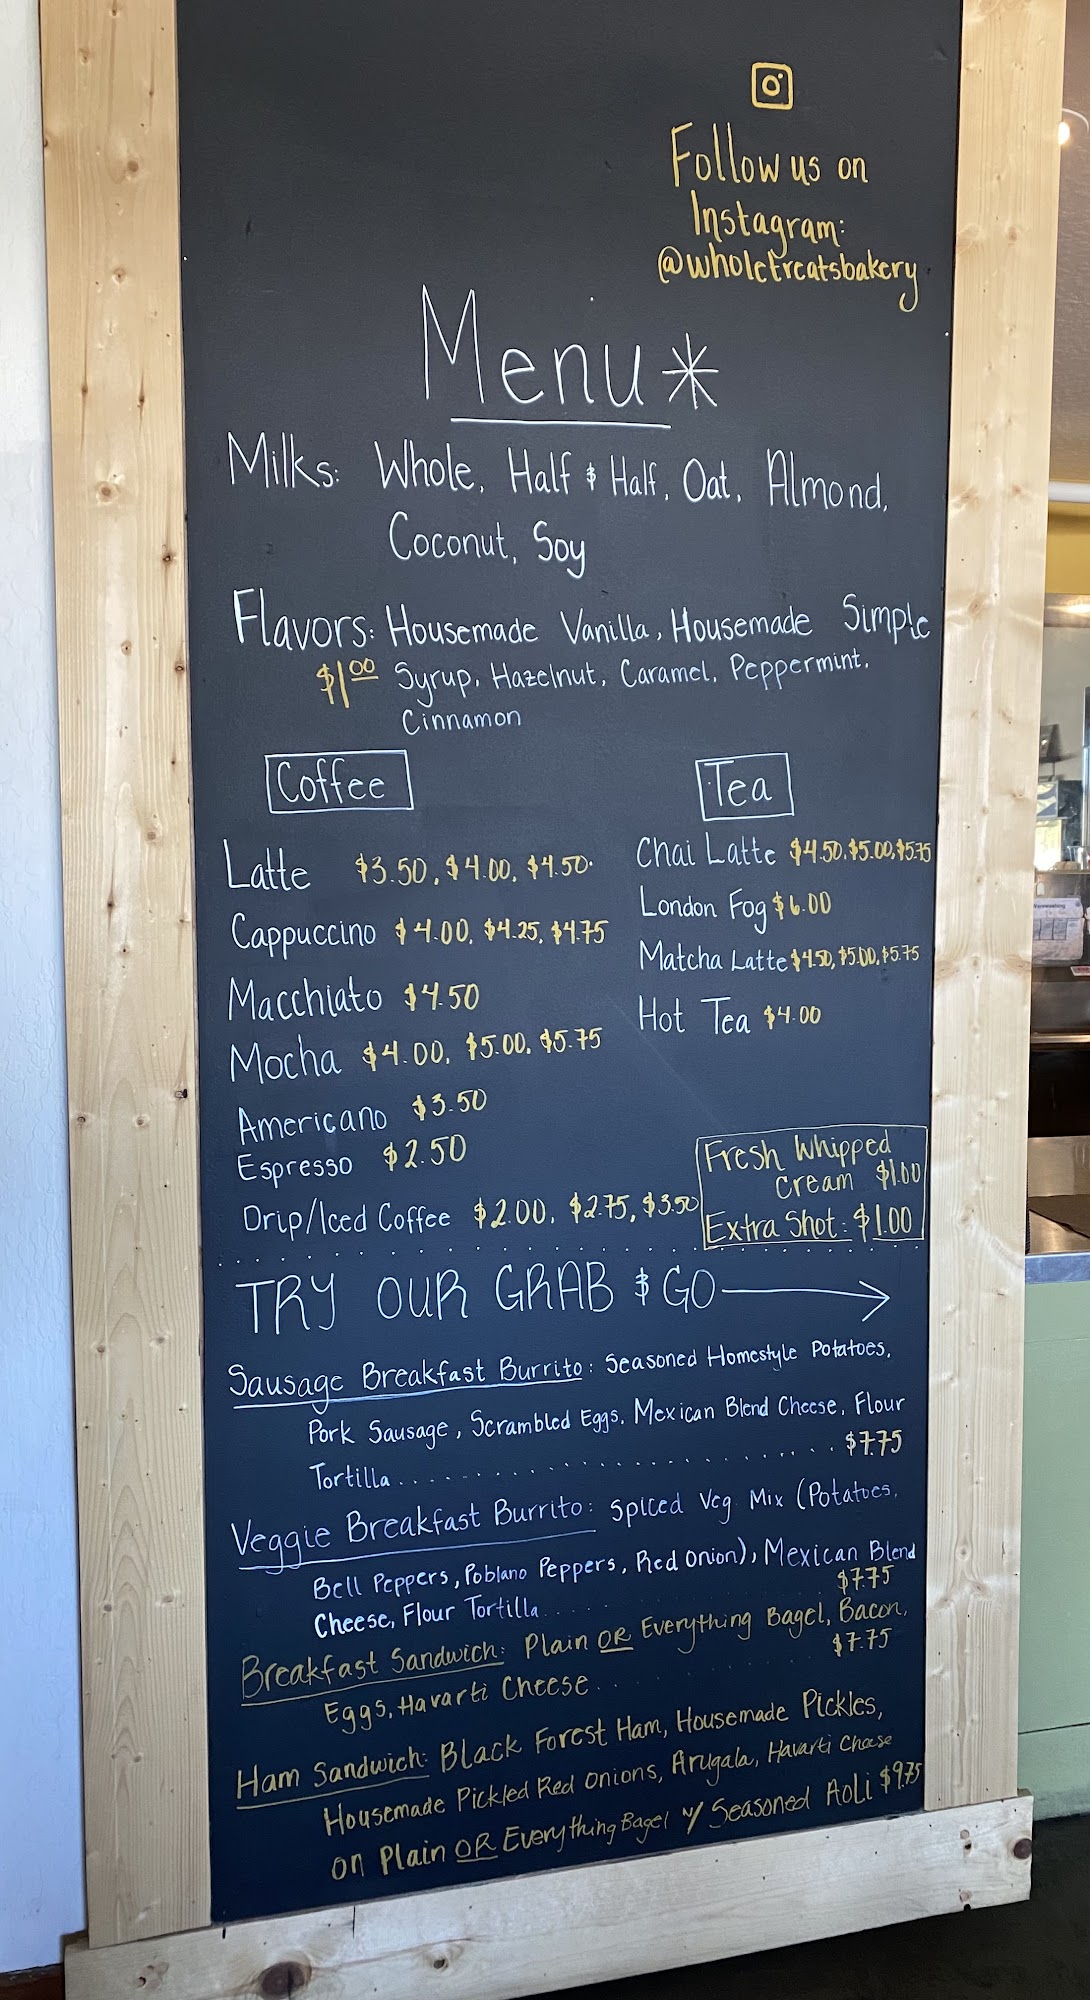 Follow us on
Instagram:
@wholetreatsbakery
Menu*
Milks: Whole, Half & Half, Oat, Almond,
Coconut, Soy
Flavors: Housemade Vanilla, Housemade Simple
$1.00 Syrup, Hazelnut, Caramel, Peppermint,
Cinnamon
Coffee
Latte $3.50, $4.00, $4.50
Cappuccino $4.00, $4.25, $4.75
Macchiato $4.50
Mocha $4.00, $5.00, $5.75
Americano $3.50
Espresso $2.50
Drip/Iced Coffee $2.00, $2.75, $3.50
Tea
Chai Latte $4.50, $5.00, $5.75
London Fog $6.00
Matcha Latte $4.50, $5.00, $5.75
Hot Tea $4.00
Fresh Whipped
Cream $1.00
Extra Shot: $1.00
TRY OUR GRAB & GO
Sausage Breakfast Burrito: Seasoned Homestyle Potatoes,
Pork Sausage, Scrambled Eggs, Mexican Blend Cheese, Flour
Tortilla........................ $7.75
Veggie Breakfast Burrito: Spiced Veg Mix (Potatoes,
Bell Peppers, Poblano Peppers, Red Onion), Mexican Blend
Cheese, Flour Tortilla............ $7.75
Breakfast Sandwich: Plain OR Everything Bagel, Bacon,
Eggs, Havarti Cheese............ $7.75
Ham Sandwich: Black Forest Ham, Housemade Pickles,
Housemade Pickled Red Onions, Arugala, Havarti Cheese
on Plain OR Everything Bagel w/ Seasoned Aoli $9.75